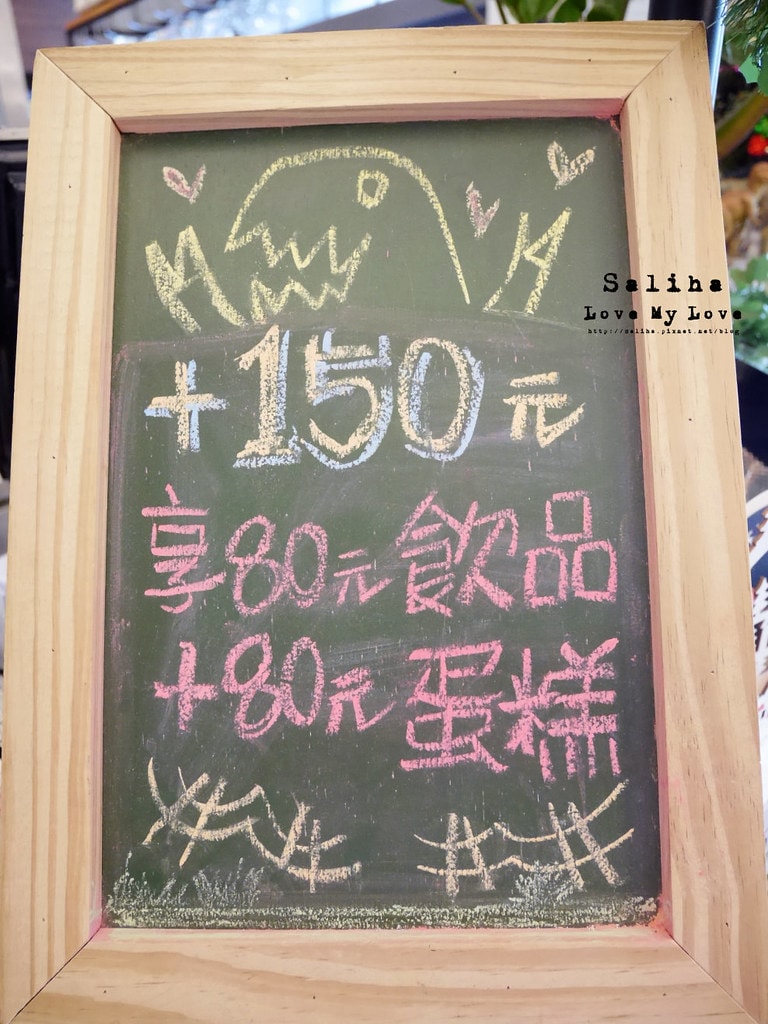 Saliha
Love My Love
http://saliha.pixnet.net/blog
+150元
享80元飲品
+80元蛋糕